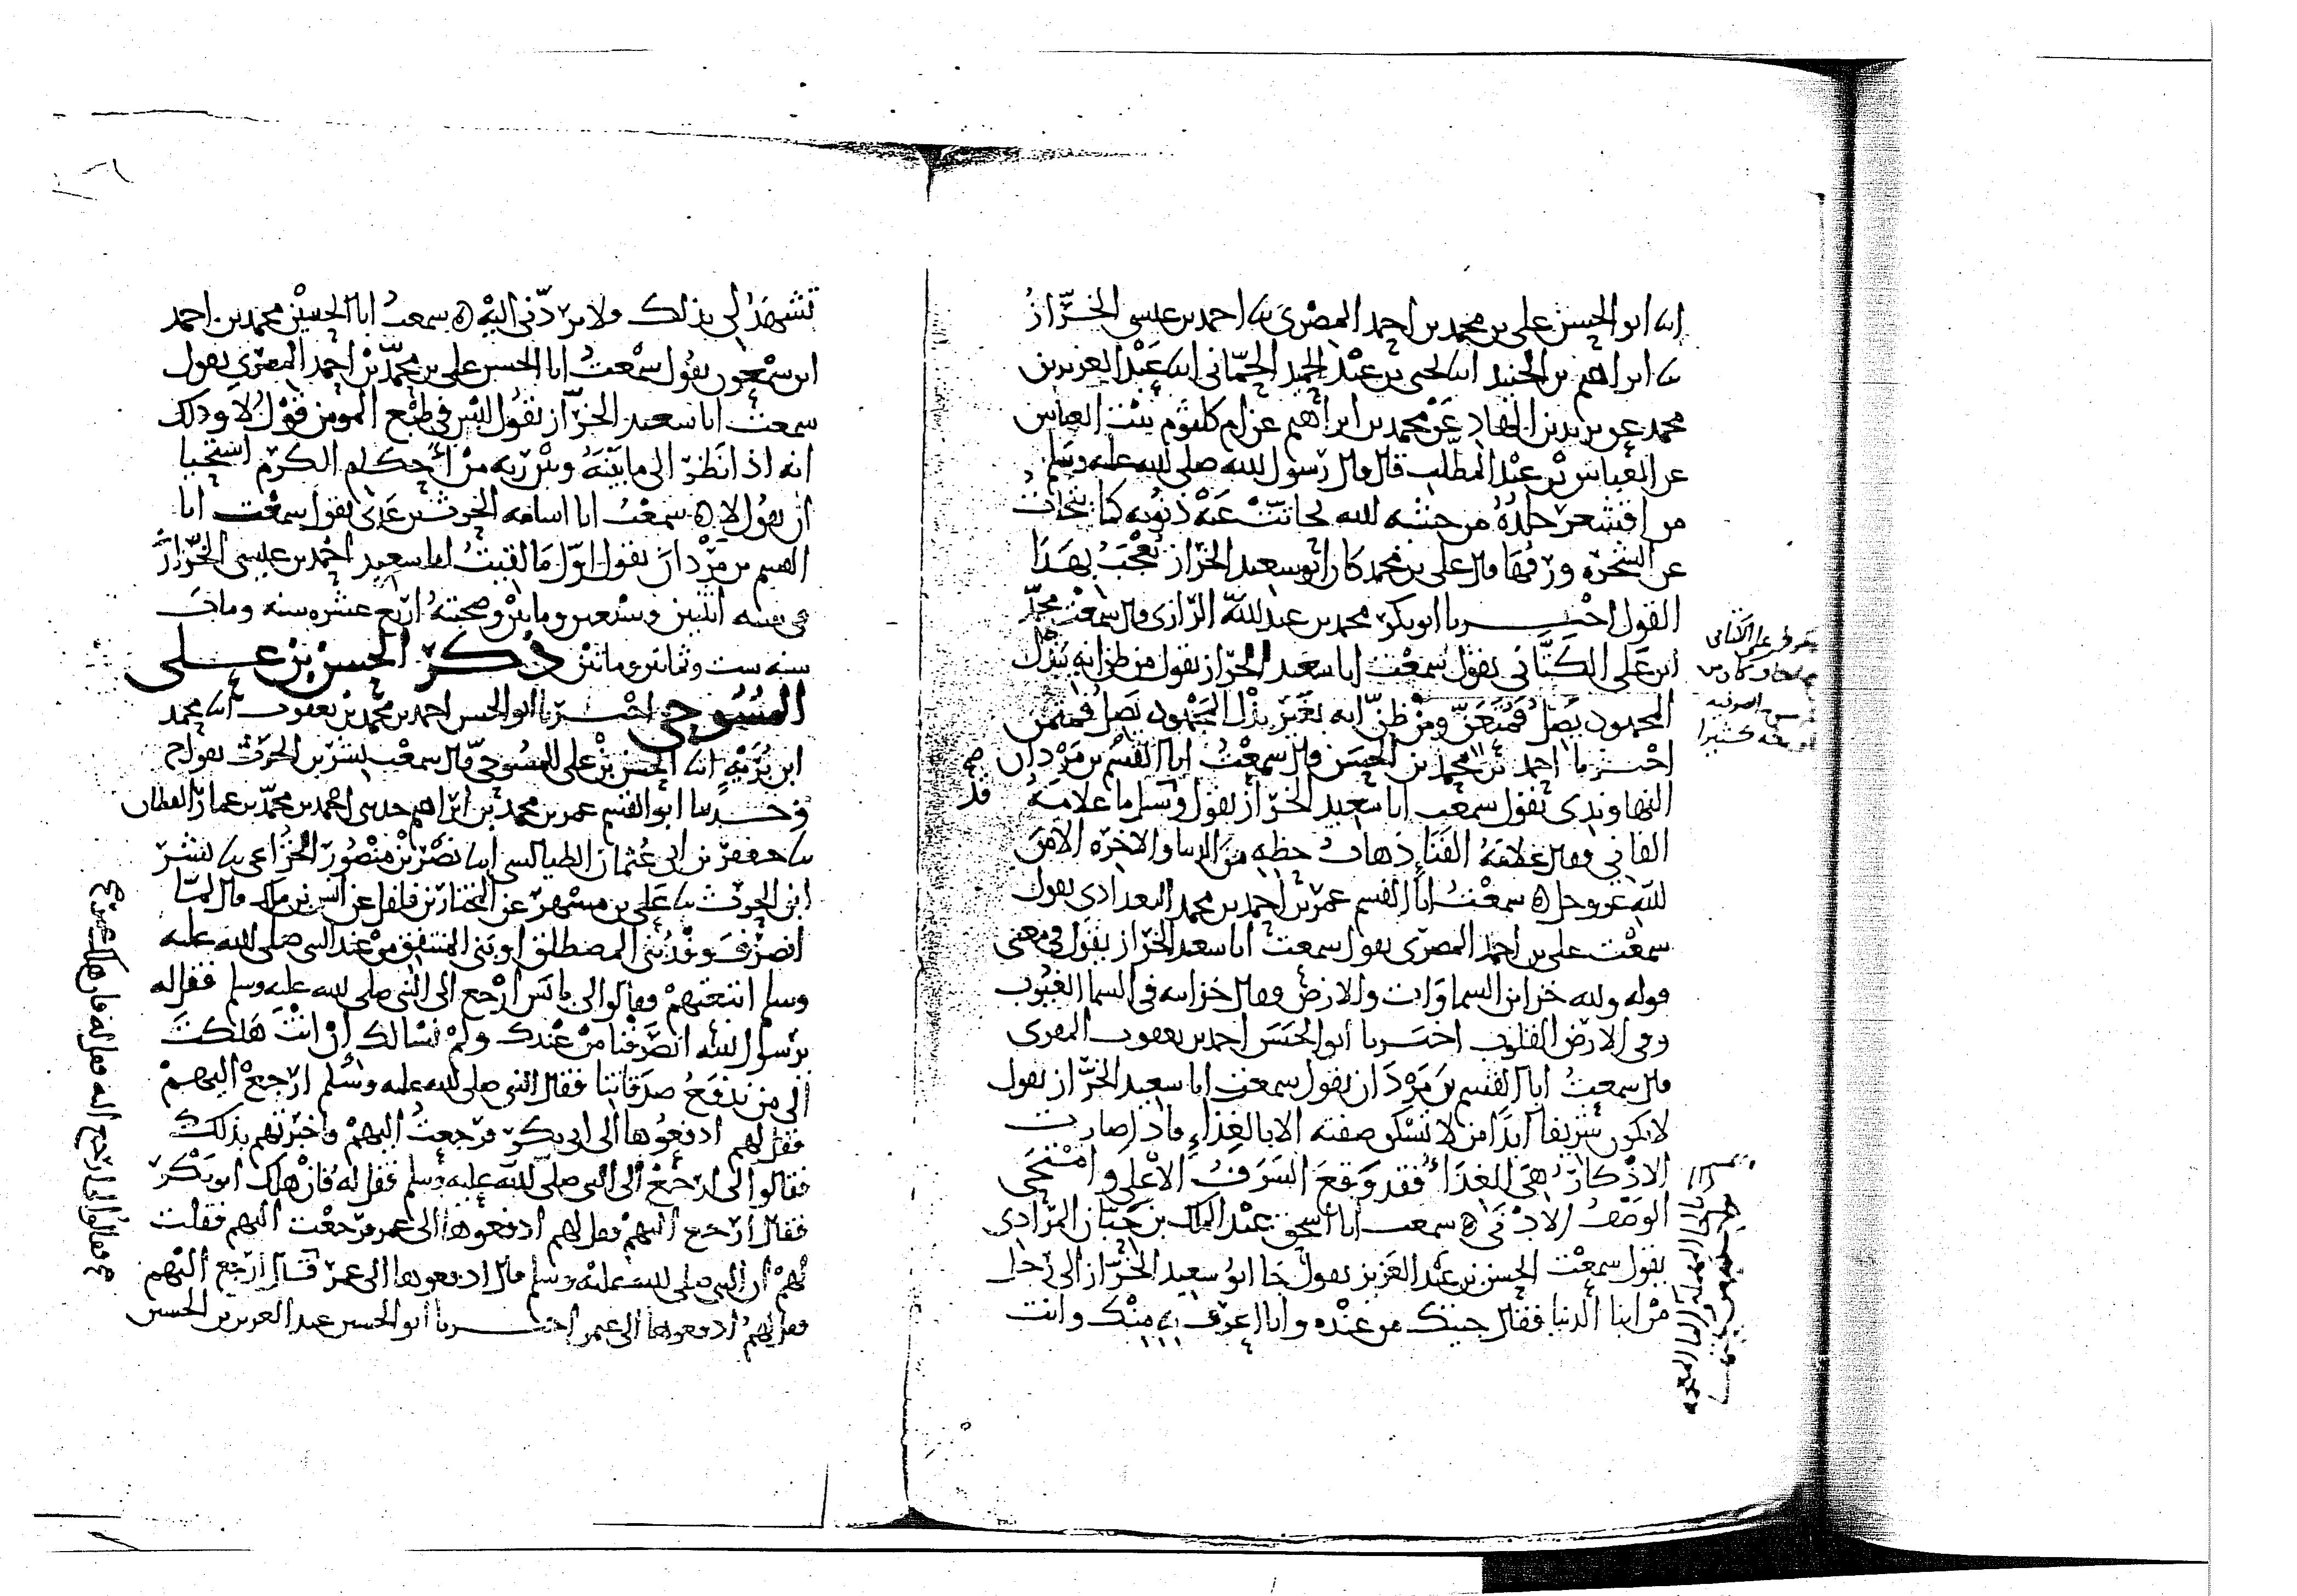 انا ابو الحسن علي بن محمد بن احمد المصري نا احمد بن عيسى الخراز
نا ابراهيم بن الجنيد انا يحيى بن عبد الحميد الحماني انا عبد العزيز بن
محمد عن يزيد بن الهاد عن محمد بن ابراهيم عن ام كلثوم بنت العباس
عن العباس بن عبد المطلب قال قال رسول الله صلى الله عليه وسلم
من اقشعر جلده من خشيه الله تحاتت عنه ذنوبه كما تحات
عن الشجره ورقها قال علي بن محمد كان ابو سعيد الخراز تعجب بهذا
القول اخبرنا ابو بكر محمد بن عبد الله الرازي قال سمعت محمد
ابن علي الكتاني يقول سمعت ابا سعيد الخراز يقول من ظن انه ببذل
المجهود يصل فمتعن ومن ظن انه بغير بذل المجهود يصل فمتمن
اخبرنا احمد بن محمد بن الحسن قال سمعت ابا القسم بن مردان
النهاوندي يقول سمعت ابا سعيد الخراز يقول وسئل ما علامة
الفاني فقال علامة الفناء ذهاب حظه من الدنيا والاخره الا من
الله عز وجل ه سمعت ابا القسم عمر بن احمد بن محمد البغدادي يقول
سمعت علي بن احمد المصري يقول سمعت ابا سعيد الخراز يقول في معنى
قوله ولله خزاين السماوات والارض فقال خزاينه في السما الغيوب
وفي الارض القلوب اخبرنا ابو الحسن احمد بن يعقوب المقري
قال سمعت ابا القسم بن مردان يقول سمعت ابا سعيد الخراز يقول
لا يكون شريفا ابدا من لا تسكن صفته الا بالغذاء فاذا صارت
الاذكار هي الغذاء فقد وقع الشرف الاعلى وامتحى
الوصف الادنى ه سمعت ابا اسحق عبد الملك بن حبان المرادي
يقول سمعت الحسن بن عبد العزيز يقول جا ابو سعيد الخراز الى رجل
من ابنا الدنيا فقال جيتك من عنده وانا اعرف به منك وانت
تشهد لي بذلك ولا تردني اليه ه سمعت ابا الحسين محمد بن احمد
ابن سمعون يقول سمعت ابا الحسن علي بن محمد بن احمد المصري يقول
سمعت ابا سعيد الخراز يقول ليس في طبع المومن قول لا وذلك
انه اذا نظر الى ما بينه وبين ربه من احكام الكرم استحيا
ان يقول لا ه سمعت ابا اسامه الحرث بن عدي يقول سمعت ابا
القسم بن مردان يقول اول ما لقيت ابا سعيد احمد بن عيسى الخراز
في سنه اثنين وسبعين ومايتين وصحبته اربع عشره سنه ومات
سنه ست وثمانين ومايتين ذكر الحسن بن علي
المسوحي اخبرنا ابو الحسن احمد بن محمد بن يعقوب انا محمد
ابن بريه انا الحسن بن علي المسوحي قال سمعت بشر بن الحرث يقول ح
وحدثنا ابو القسم عمر بن محمد بن ابراهيم حدثني احمد بن محمد بن عمار القطان
نا جعفر بن ابي عثمان الطيالسي انا نصر بن منصور الخزاعي نا بشر
ابن الحرث نا علي بن مسهر عن المختار بن فلفل عن انس بن مالك قال لما
انصرف وفد بني المصطلق او بني المنتفق من عند النبي صلى الله عليه
وسلم اتبعتهم فقالوا لي يا انس ارجع الى النبي صلى الله عليه وسلم فقل له
يرسول الله انصرفنا من عندك ولم نسالك ان انت هلكت
الى من ندفع صدقاتنا فقال النبي صلى الله عليه وسلم ارجع اليهم
فقل لهم ادفعوها الى ابي بكر فرجعت اليهم فاخبرتهم بذلك
فقالوا لي ارجع الى النبي صلى الله عليه وسلم فقل له فان هلك ابو بكر
فقال ارجع اليهم فقل لهم ادفعوها الى عمر فرجعت اليهم فقلت
لهم ان النبي صلى الله عليه وسلم قال ادفعوها الى عمر قال ارجع اليهم
فقل لهم ادفعوها الى عمر اخبرنا ابو الحسين عبد العزيز بن الحسن
فقالوا لي ارجع اليه فقل له فان هلك عمر